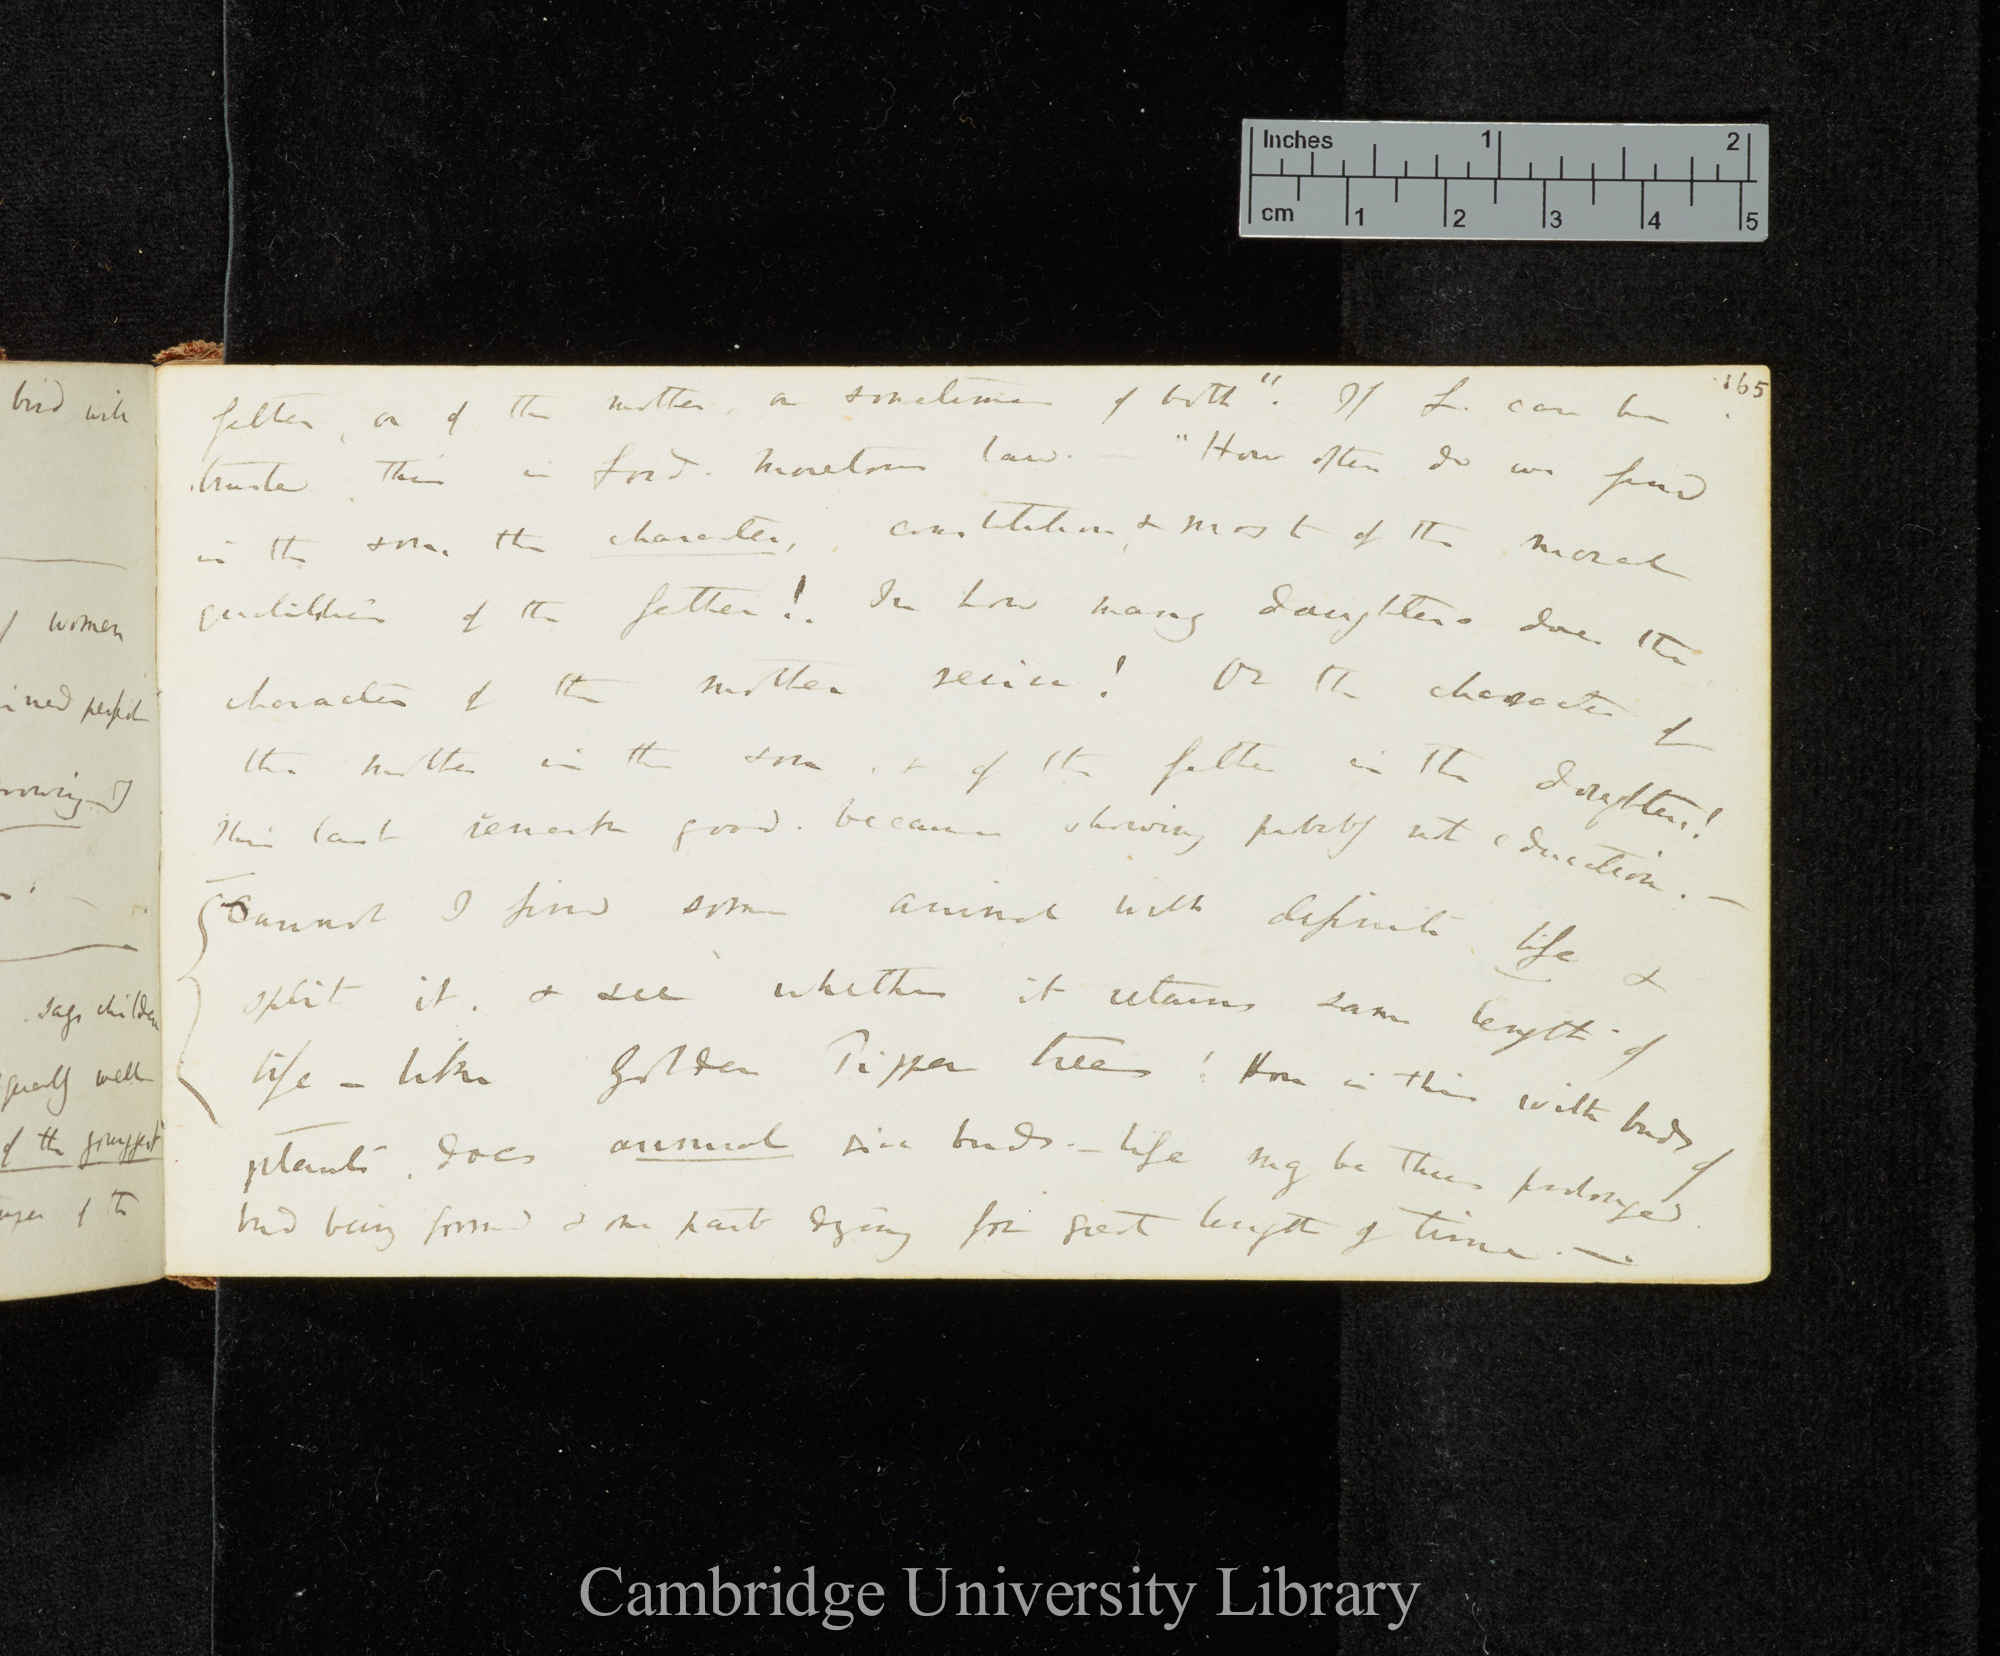 Inches 1 2
cm 1 2 3 4 5
bird will
women
ined perfect
rowing
says children
equally well
of the youngest
of the
165
father, or of the mother, or sometimes of both". If L. can be
trusted, this is Lord. Moreton's law. — "How often do we find
in the son, the character, constitution, & most of the moral
qualities of the father! In how many daughters does the
character of the mother revive! Or the character of
the mother in the son, & of the father in the daughters!
This last remark good. because showing probably not education. —
Cannot I find some animal with definite life &
split it, & see whether it retains same length of
life — like Golden Pippen trees! How is this with buds of
plants, does annual give buds. — life may be thus prolonged.
bud being formed & one part dying for great length of time. —.
Cambridge University Library